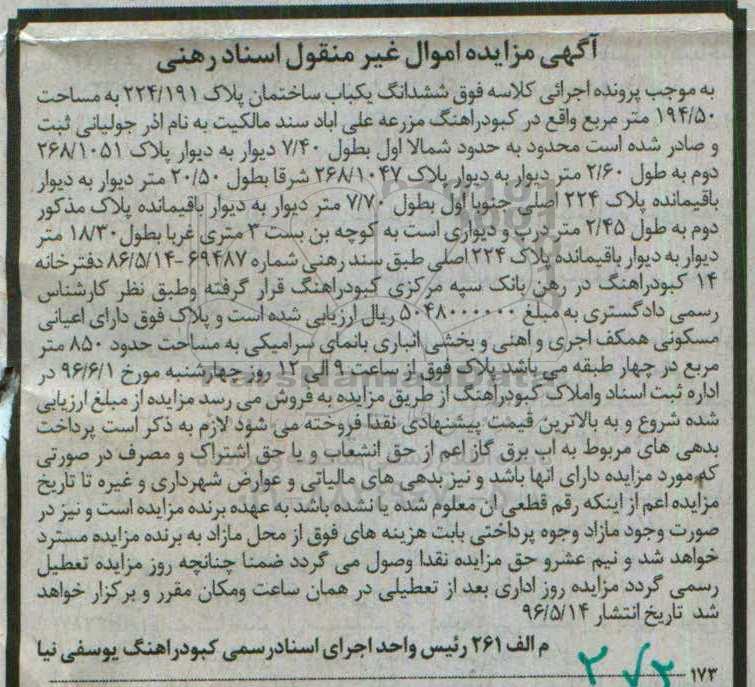 آگهی مزایده اموال غیر منقول اسناد رهنی
به موجب پرونده اجرائی کلاسه فوق ششدانگ یکباب ساختمان پلاک ۲۲۴/۱۹۱ به مساحت
۱۹۴/۵۰ متر مربع واقع در کبودراهنگ مزرعه علی اباد سند مالکیت به نام اذر جولیانی ثبت
و صادر شده است محدود به حدود شمالا اول بطول ۷/۴۰ دیوار به دیوار پلاک ۲۶۸/۱۰۵۱
دوم به طول ۲/۶۰ متر دیوار به دیوار پلاک ۲۶۸/۱۰۴۷ شرقا بطول ۲۰/۵۰ متر دیوار به دیوار
باقیمانده پلاک ۲۲۴ اصلی جنوبا اول بطول ۷/۷۰ متر دیوار به دیوار باقیمانده پلاک مذکور
دوم به طول ۲/۴۵ متر درب و دیواری است به کوچه بن بست ۳ متری غربا بطول ۱۸/۳۰ متر
دیوار به دیوار باقیمانده پلاک ۲۲۴ اصلی طبق سند رهنی شماره ۶۹۴۸۷ -۸۶/۵/۱۴ دفترخانه
۱۴ کبودراهنگ در رهن بانک سپه مرکزی کبودراهنگ قرار گرفته وطبق نظر کارشناس
رسمی دادگستری به مبلغ ۵۰۴۸۰۰۰۰۰۰ ریال ارزیابی شده است و پلاک فوق دارای اعیانی
مسکونی همکف اجری و اهنی و بخشی انباری بانمای سرامیکی به مساحت حدود ۸۵۰ متر
مربع در چهار طبقه می باشد پلاک فوق از ساعت ۹ الی ۱۲ روز چهارشنبه مورخ ۹۶/۶/۱ در
اداره ثبت اسناد واملاک کبودراهنگ از طریق مزایده به فروش می رسد مزایده از مبلغ ارزیابی
شده شروع و به بالاترین قیمت پیشنهادی نقدا فروخته می شود لازم به ذکر است پرداخت
بدهی های مربوط به اب برق گاز اعم از حق انشعاب و یا حق اشتراک و مصرف در صورتی
که مورد مزایده دارای انها باشد و نیز بدهی های مالیاتی و عوارض شهرداری و غیره تا تاریخ
مزایده اعم از اینکه رقم قطعی ان معلوم شده یا نشده باشد به عهده برنده مزایده است و نیز در
صورت وجود مازاد وجوه پرداختی بابت هزینه های فوق از محل مازاد به برنده مزایده مسترد
خواهد شد و نیم عشرو حق مزایده نقدا وصول می گردد ضمنا چنانچه روز مزایده تعطیل
رسمی گردد مزایده روز اداری بعد از تعطیلی در همان ساعت ومکان مقرر و برگزار خواهد
شد تاریخ انتشار ۹۶/۵/۱۴
م الف ۲۶۱ رئیس واحد اجرای اسنادرسمی کبودراهنگ یوسفی نیا
۱۷۳